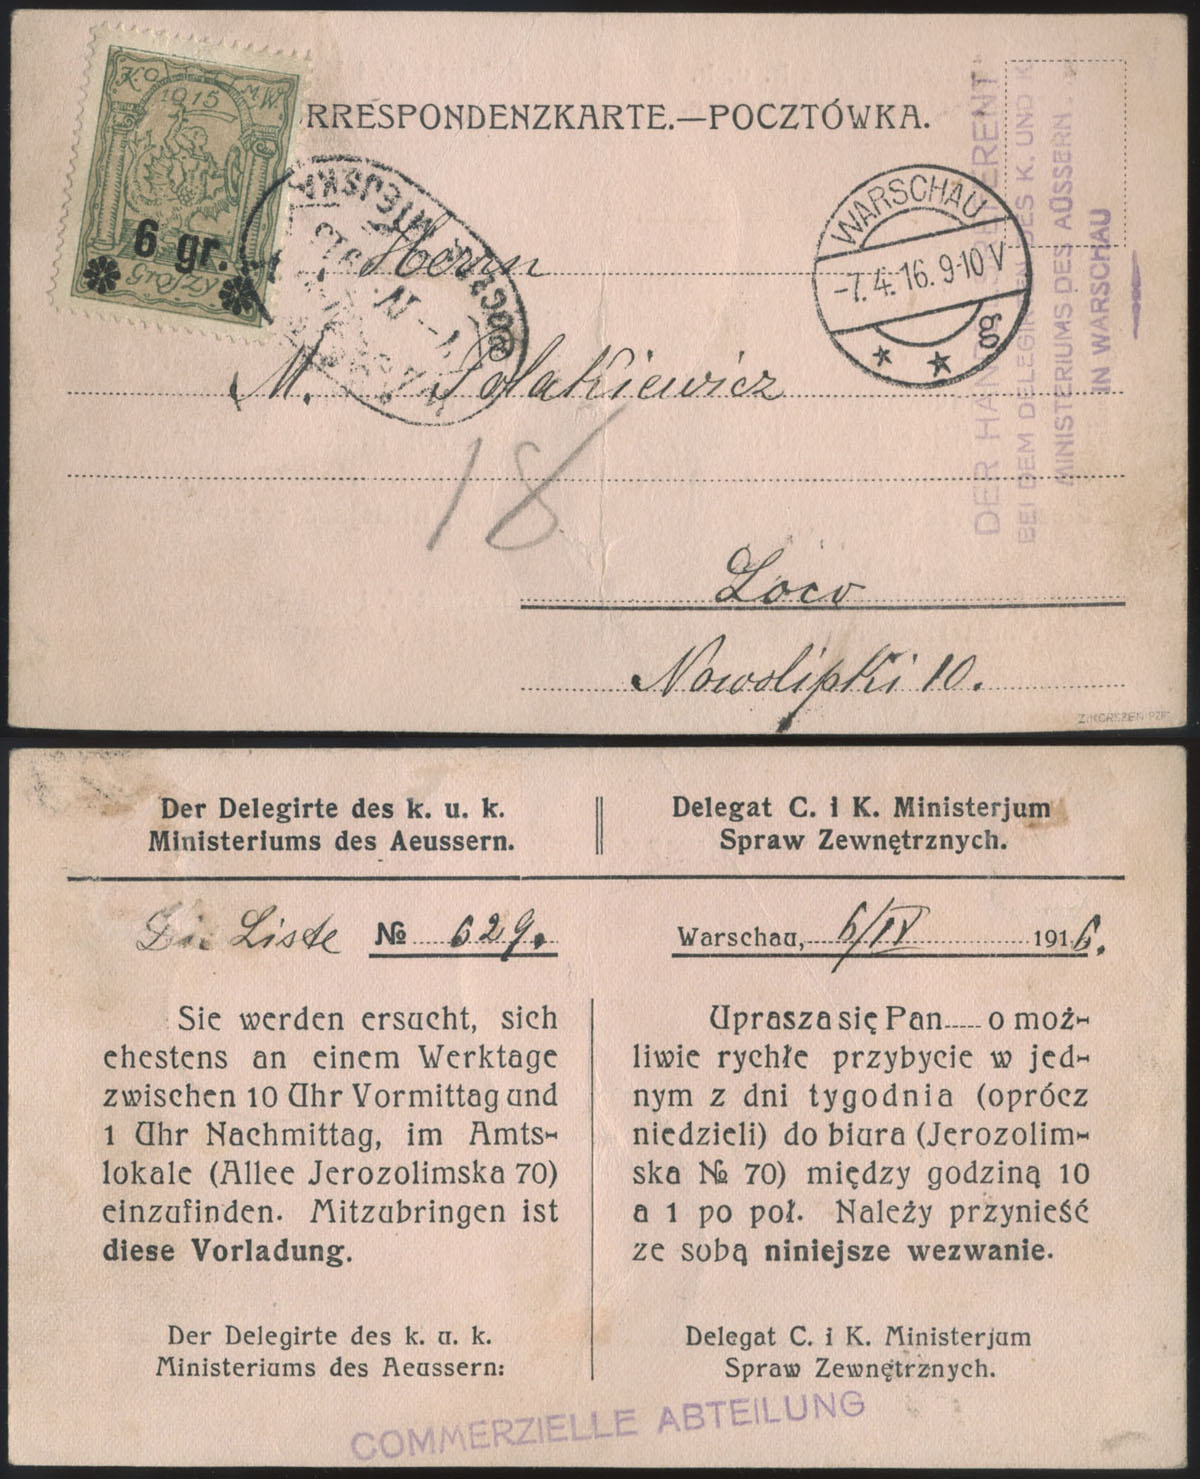 K.O. M.W.
1915
6 gr.
Groszy
RRESPONDENZKARTE.—POCZTÓWKA.
WARSCHAU
-7.4.16.9-10V
* *
DER HAN ERENT
BEI DEM DELEGIR DES K. UND K.
MINISTERIUMS DES ÄUSSERN
IN WARSCHAU
POCZTA MIEJSK
IV
Herrn
M. Polakiewicz
18
Loco
Nowolipki 10.
Der Delegirte des k. u. k.
Ministeriums des Aeussern.
Delegat C. i K. Ministerjum
Spraw Zewnętrznych.
Liste № 629.
Warschau, 6/IV 1916.
Sie werden ersucht, sich
ehestens an einem Werktage
zwischen 10 Uhr Vormittag und
1 Uhr Nachmittag, im Amts-
lokale (Allee Jerozolimska 70)
einzufinden. Mitzubringen ist
diese Vorladung.
Der Delegirte des k. u. k.
Ministeriums des Aeussern:
Uprasza się Pan..... o moż-
liwie rychłe przybycie w jed-
nym z dni tygodnia (oprócz
niedzieli) do biura (Jerozolim-
ska № 70) między godziną 10
a 1 po poł. Należy przynieść
ze sobą niniejsze wezwanie.
Delegat C. i K. Ministerjum
Spraw Zewnętrznych.
COMMERZIELLE ABTEILUNG